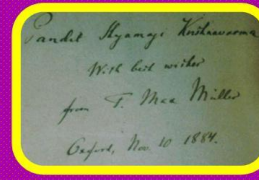 Pandit Shyamaji Krishnavarma
With best wishes
from F. Max Müller
Oxford, Nov. 10 1884.